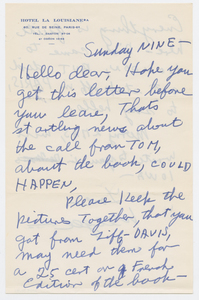 HOTEL LA LOUISIANE
60, RUE DE SEINE, PARIS-6e
Sunday NINE—
Hello dear, Hope you
get this letter before
you leave, Thats
startling news about
the call from TOM,
about the book, COULD
HAPPEN,
Please Keep the
pictures Together, that you
got from Ziff-DAVIS,
may need them for
a 25 cent or a French
Edition of the book—